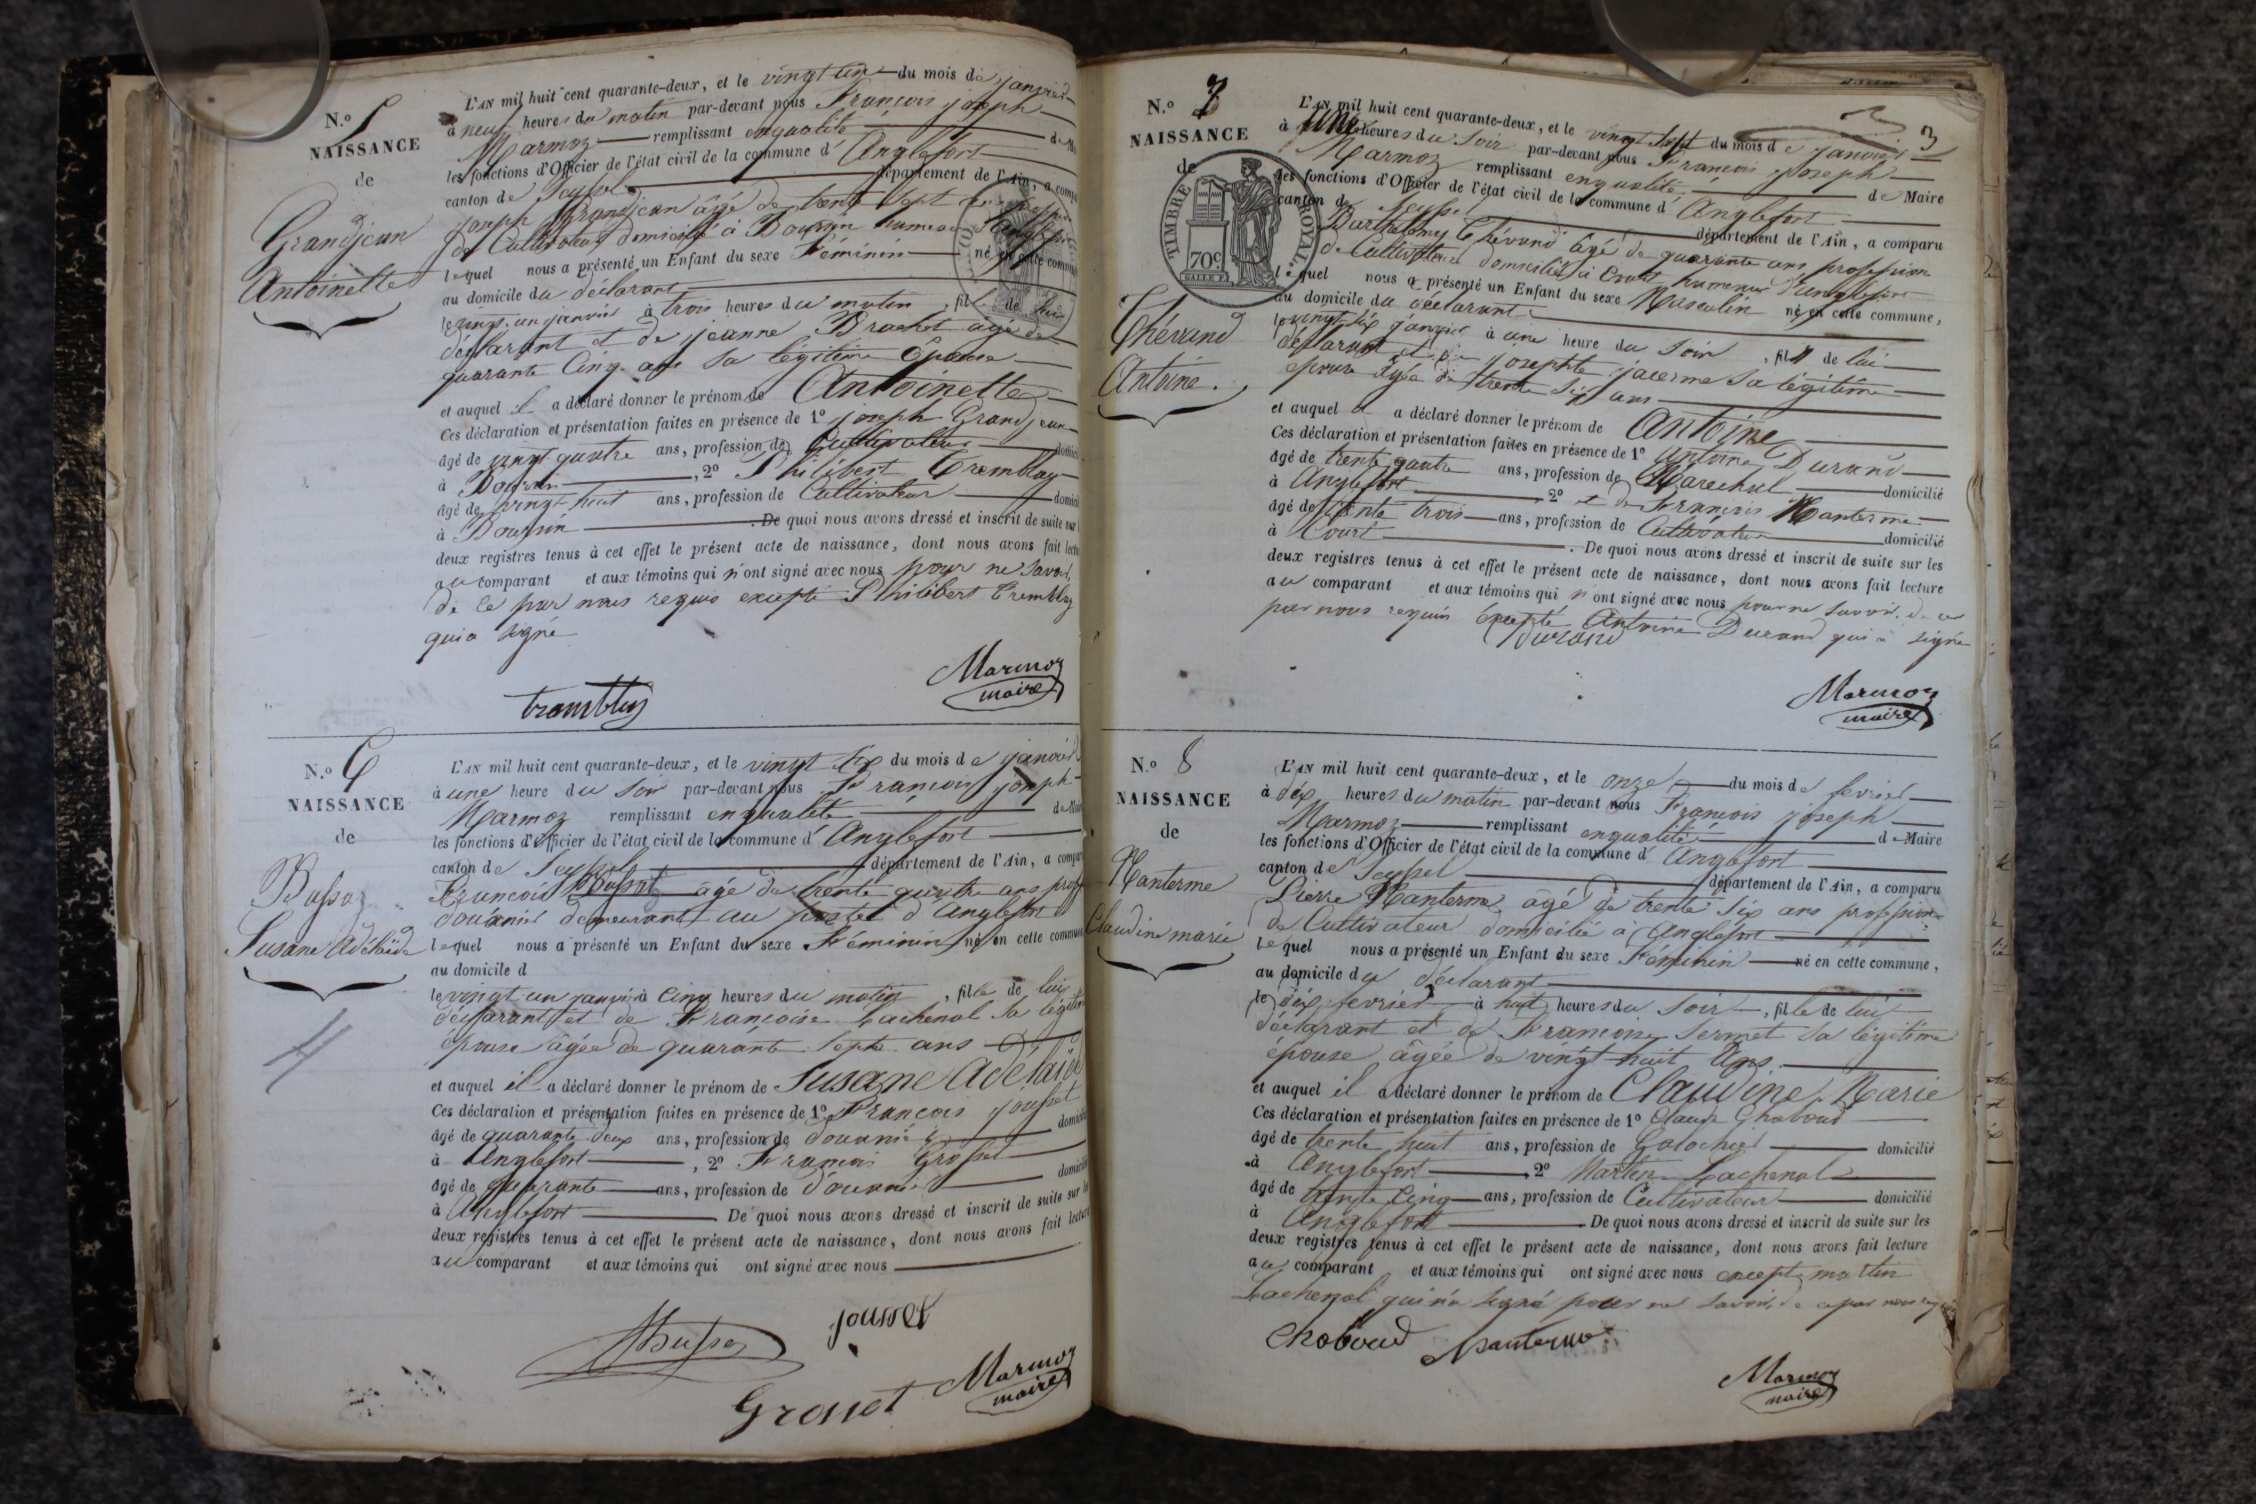 N.º 5
NAISSANCE
de
Grandjean
Antoinette
L'AN mil huit cent quarante-deux, et le vingt un du mois de janvier
à neuf heures du matin par-devant nous François joseph
Marmoz remplissant en qualité de Mai
les fonctions d'Officier de l'état civil de la commune d' Anglefort
canton de Seyssel département de l'Ain, a compa
joseph Grandjean âgé de trente sept ans
de Cultivateur domicilié à Boursin hameau d'Anglefort
lequel nous a présenté un Enfant du sexe Féminin né en cette commune
au domicile du déclarant
le vingt-un janvier à trois heures du matin, fille de lui
déclarant et de jeanne Brachet âgée de
quarante Cinq ans sa légitime Epouse
et auquel il a déclaré donner le prénom de Antoinette
Ces déclaration et présentation faites en présence de 1º joseph Grandjean
âgé de vingt quatre ans, profession de Cultivateur domici
à Boursin, 2º Philibert Tremblay
âgé de vingt huit ans, profession de Cultivateur domici
à Boursin. De quoi nous avons dressé et inscrit de suite sur
deux registres tenus à cet effet le présent acte de naissance, dont nous avons fait lectu
au comparant et aux témoins qui n'ont signé avec nous pour ne savoir,
de ce par nous requis excepté Philibert Tremblay
qui a signé
tremblay
Marmoz
maire
N.º 6
NAISSANCE
de
Bussoz
Susane Adélaïde
L'AN mil huit cent quarante-deux, et le vingt six du mois de janvier
à une heure du soir par-devant nous François joseph
Marmoz remplissant en qualité de Mair
les fonctions d'Officier de l'état civil de la commune d' Anglefort
canton de Seyssel département de l'Ain, a compar
François âgé de trente quatre ans prof
douanier demeurant au poste d'Anglefort
lequel nous a présenté un Enfant du sexe Féminin né en cette commune
au domicile d
le vingt-un janvier à Cinq heures du matin, fille de lui
déclarant et de Françoise Lachenal sa légitime
épouse âgée de quarante sept ans
et auquel il a déclaré donner le prénom de Susane Adélaïde
Ces déclaration et présentation faites en présence de 1º François jousset
âgé de quarante deux ans, profession de douanier domici
à Anglefort, 2º François Grosset
âgé de quarante ans, profession de douanier domicili
à Anglefort De quoi nous avons dressé et inscrit de suite sur le
deux registres tenus à cet effet le présent acte de naissance, dont nous avons fait lecture
au comparant et aux témoins qui ont signé avec nous
jousset
Marmoz
maire
N.º 7
NAISSANCE
de
Thévand
Antoine.
TIMBRE ROYAL
70c
3
L'AN mil huit cent quarante-deux, et le vingt sept du mois de janvier
à une heures du soir par-devant nous François joseph
Marmoz remplissant en qualité de Maire
les fonctions d'Officier de l'état civil de la commune d' Anglefort
canton de Seyssel département de l'Ain, a comparu
Barthelemy Thévand âgé de quarante ans profession
de Cultivateur domicilié à hameau d'anglefort
lequel nous a présenté un Enfant du sexe Masculin né en cette commune,
au domicile du déclarant
le vingt six janvier à une heure du soir, fils de lui
déclarant et de josephte jacerme sa légitime
épouse âgée de trente six ans
et auquel il a déclaré donner le prénom de Antoine
Ces déclaration et présentation faites en présence de 1º Antoine Durand
âgé de trente quatre ans, profession de Marechal domicilié
à Anglefort 2º et de François Manterme
âgé de trente trois ans, profession de Cultivateur domicilié
à Court. De quoi nous avons dressé et inscrit de suite sur les
deux registres tenus à cet effet le présent acte de naissance, dont nous avons fait lecture
au comparant et aux témoins qui n'ont signé avec nous pour ne savoir, de ce
par nous requis Excepté Antoine Durand qui a signé
durand
Marmoz
maire
N.º 8
NAISSANCE
de
Manterme
Claudine marie
L'AN mil huit cent quarante-deux, et le onze du mois de fevrier
à dix heures du matin par-devant nous François joseph
Marmoz remplissant en qualité de Maire
les fonctions d'Officier de l'état civil de la commune d' Anglefort
canton de Seyssel département de l'Ain, a comparu
Pierre Manterme âgé de trente six ans profession
de Cultivateur domicilié à Anglefort
lequel nous a présenté un Enfant du sexe Féminin né en cette commune,
au domicile du déclarant
le dix fevrier à huit heures du soir, fille de lui
déclarant et de Françoise Sermet sa légitime
épouse âgée de vingt huit ans
et auquel il a déclaré donner le prénom de Claudine Marie
Ces déclaration et présentation faites en présence de 1º Claude Chaboud
âgé de trente huit ans, profession de Galochier domicilié
à Anglefort 2º Martin Lachenal
âgé de trente Cinq ans, profession de Cultivateur domicilié
à Anglefort De quoi nous avons dressé et inscrit de suite sur les
deux registres tenus à cet effet le présent acte de naissance, dont nous avons fait lecture
au comparant et aux témoins qui ont signé avec nous excepté martin
Lachenal qui n'a signé pour ne savoir, de ce par nous requis
Chaboud Manterme
Marmoz
maire